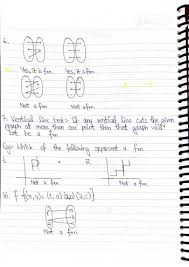 6.
Yes, it is fxn. Yes, it is fxn
Not a fxn Not a fxn
7. Vertical line test:- If any vertical line cuts the given
graph at more than one point then that graph will
not be a fxn.
Eg:- Which of the following represent a fxn
Not a fxn Not a fxn
Not a fxn